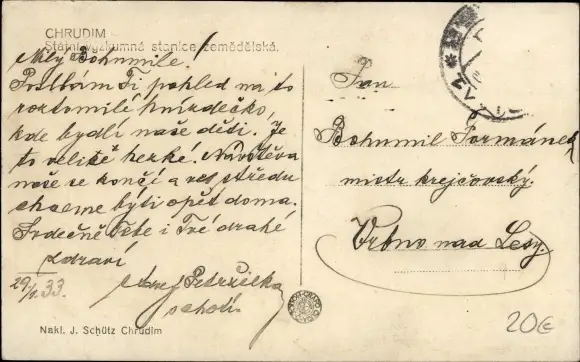 CHRUDIM
Státní výzkumná stanice zemědělská.
Milý Bohumile!
Posílám Ti pohled na to
roztomilé hnízdečko,
kde bydlí naše děti. Je
to veliké hezké! Návštěva
naše se končí a ve středu
chceme býti opět doma.
Srdečně Tebe i Tvé drahé
zdraví
Petržilka
s chotí.
29/ 33.
Nakl. J. Schütz Chrudim
Pan
Bohumil Formánek
mistr krejčovský.
Vrbno nad Lesy.
20€